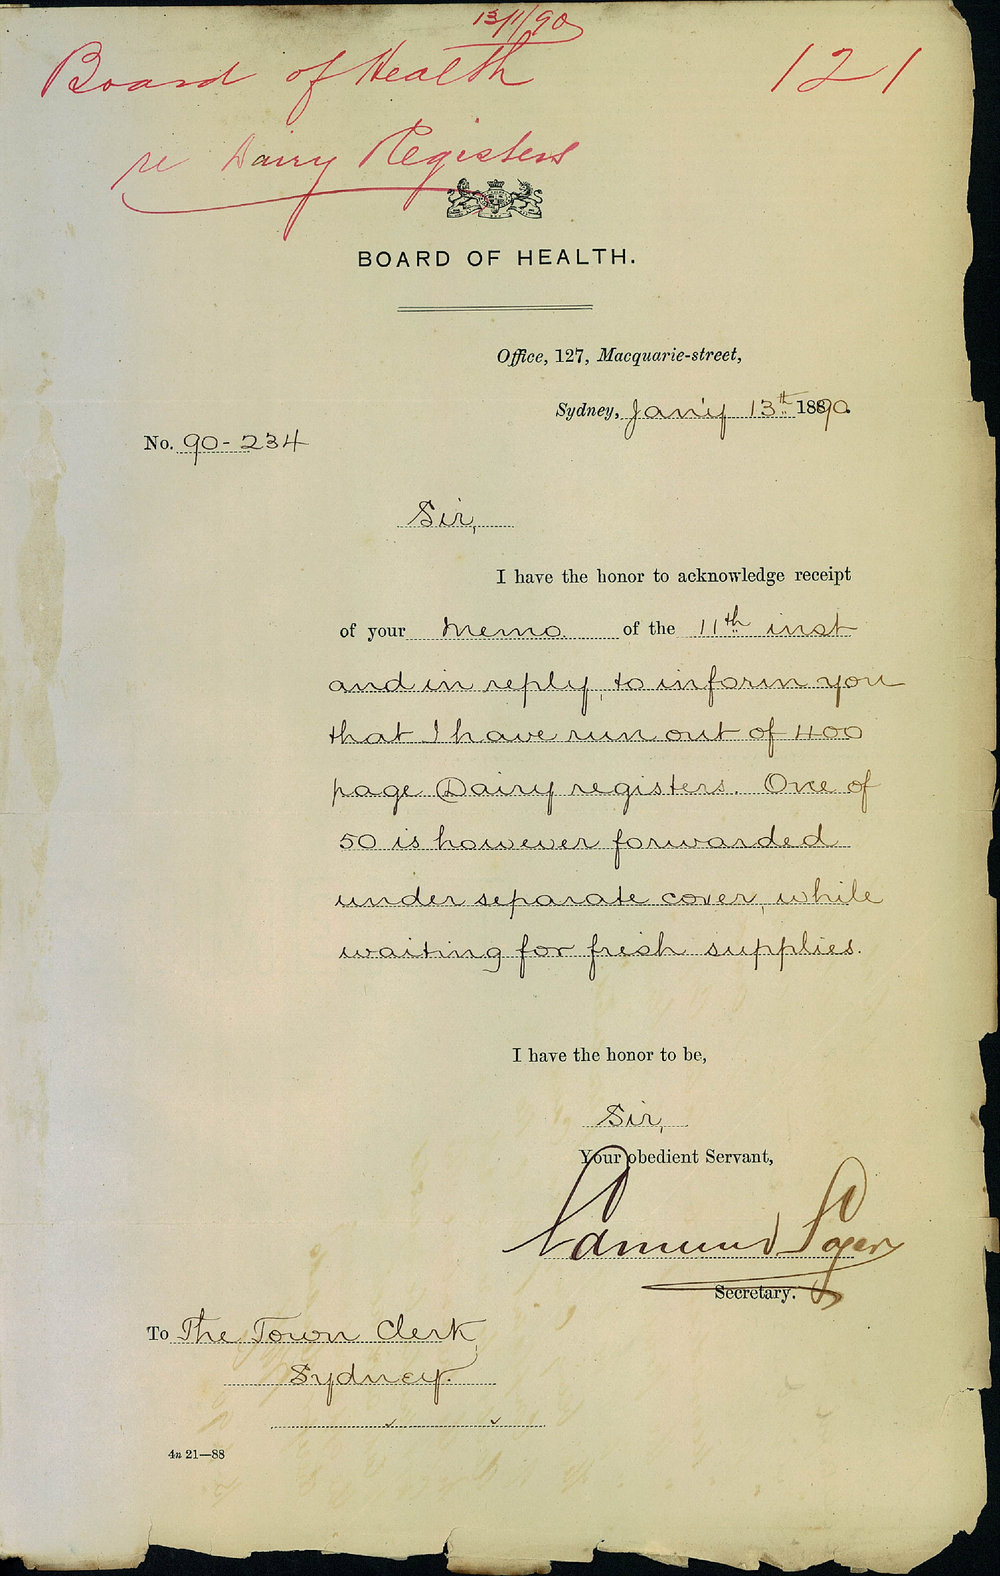 13/1/90
Board of Health 121
re Dairy Registers
BOARD OF HEALTH.
Office, 127, Macquarie-street,
Sydney, Jan'y 13th 1890.
No. 90-234
Sir,
I have the honor to acknowledge receipt
of your Memo. of the 11th inst
and in reply, to inform you
that I have run out of 400
page Dairy registers. One of
50 is however forwarded
under separate cover, while
waiting for fresh supplies.
I have the honor to be,
Sir,
Your obedient Servant,
Edmund Sager
Secretary.
To The Town Clerk,
Sydney.
4n 21—88